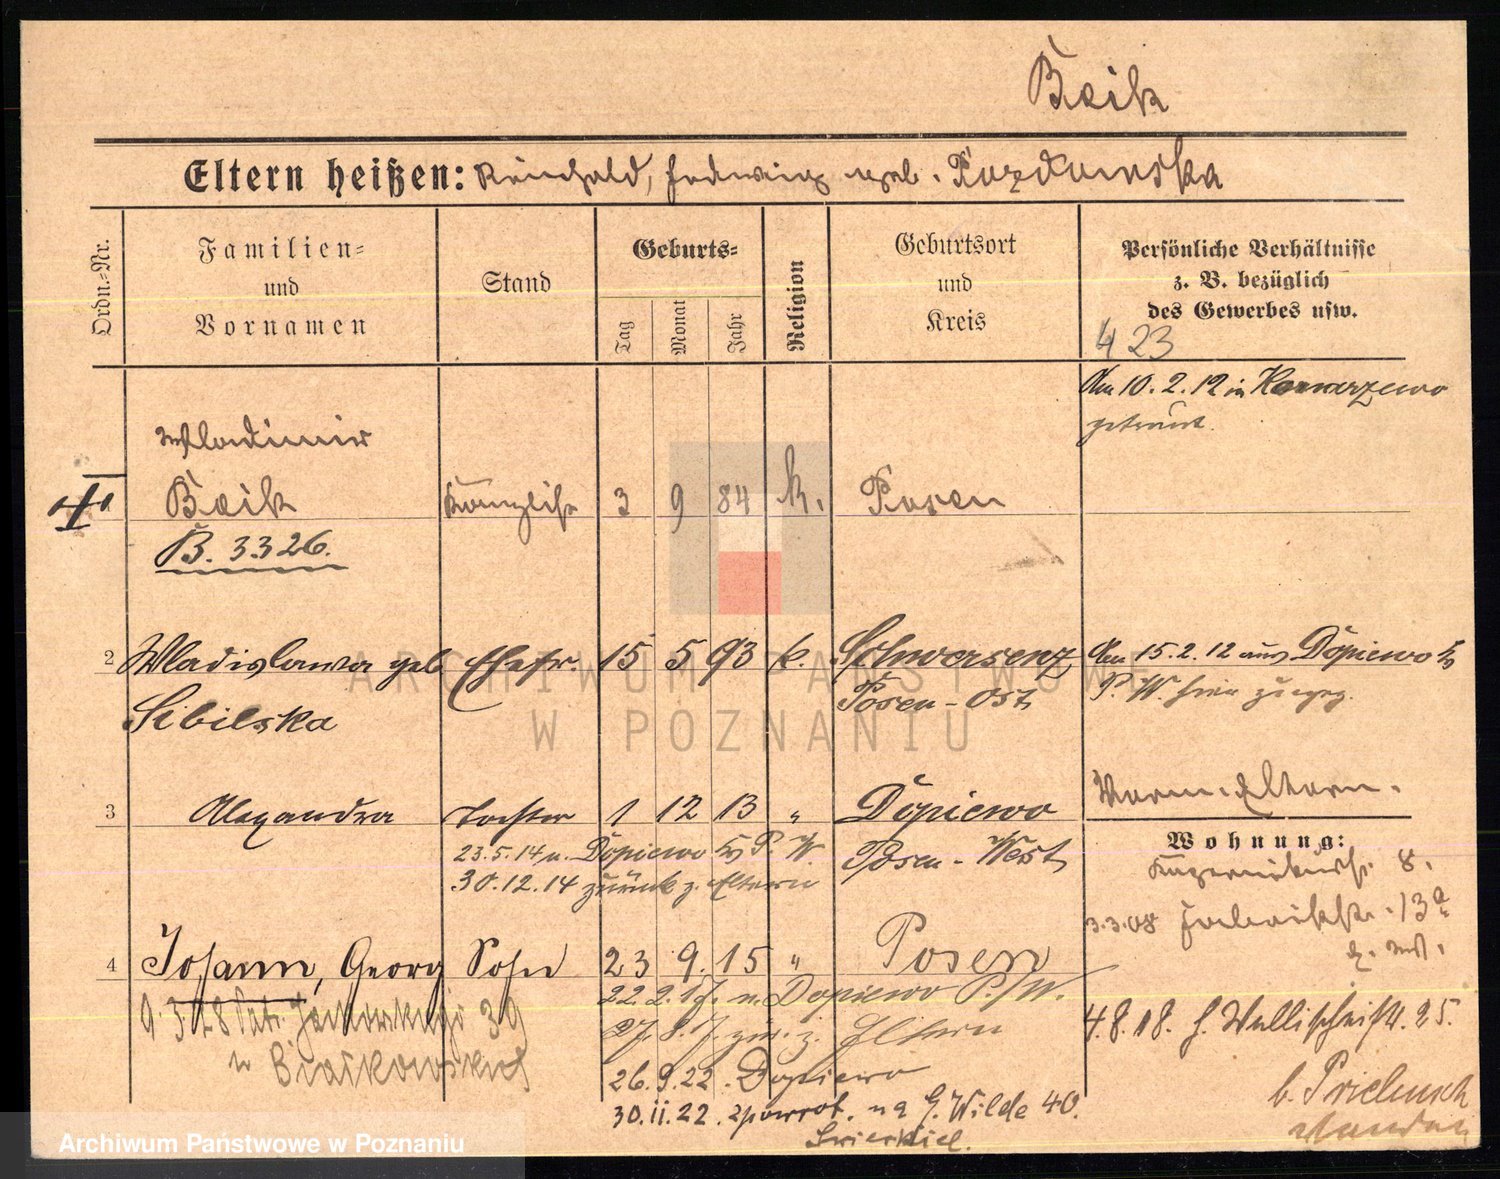 Beik
Eltern heißen: Reinhold, Hedwig geb. Pozdomska
Ordn.=Nr.
Familien=
und
Vornamen
Stand
Geburts=
Tag
Monat
Jahr
Religion
Geburtsort
und
Kreis
Persönliche Verhältnisse
z. B. bezüglich
des Gewerbes usw.
423
Am 10. 2. 12 in Konarzewo
getraut.
Wladimir
Beik Kanzlist 3 9 84 k. Posen
B. 3326.
2 Wladislawa geb Ehefr. 15 5 93 k. Schwersenz Am 15. 2. 12 aus Dopiewo Krs
Sibilska Posen-Ost P. W. hier zugez.
3 Alexandra Tochter 1 12 13 " Dopiewo
Posen-West
Worm. Eltern.
23.5.14 n. Dopiewo Krs P. W.
30.12.14 zurück z. Eltern
Wohnung:
8.
3.3.08 13a
4 Johann, Georg Sohn 23 9. 15 " Posen
22. 2. 17. n. Dopiewo P./W.
zur. z. Eltern
9. 5 28 Patr. Jackowskiego 39
u Białkowskich
26. 9. 22. Dopiewo
30. 11. 22. zpowrot. na G. Wilde 40.
4. 8. 18. Wallischeistr. 25.
b.
ARCHIWUM PAŃSTWOWE
W POZNANIU
Archiwum Państwowe w Poznaniu